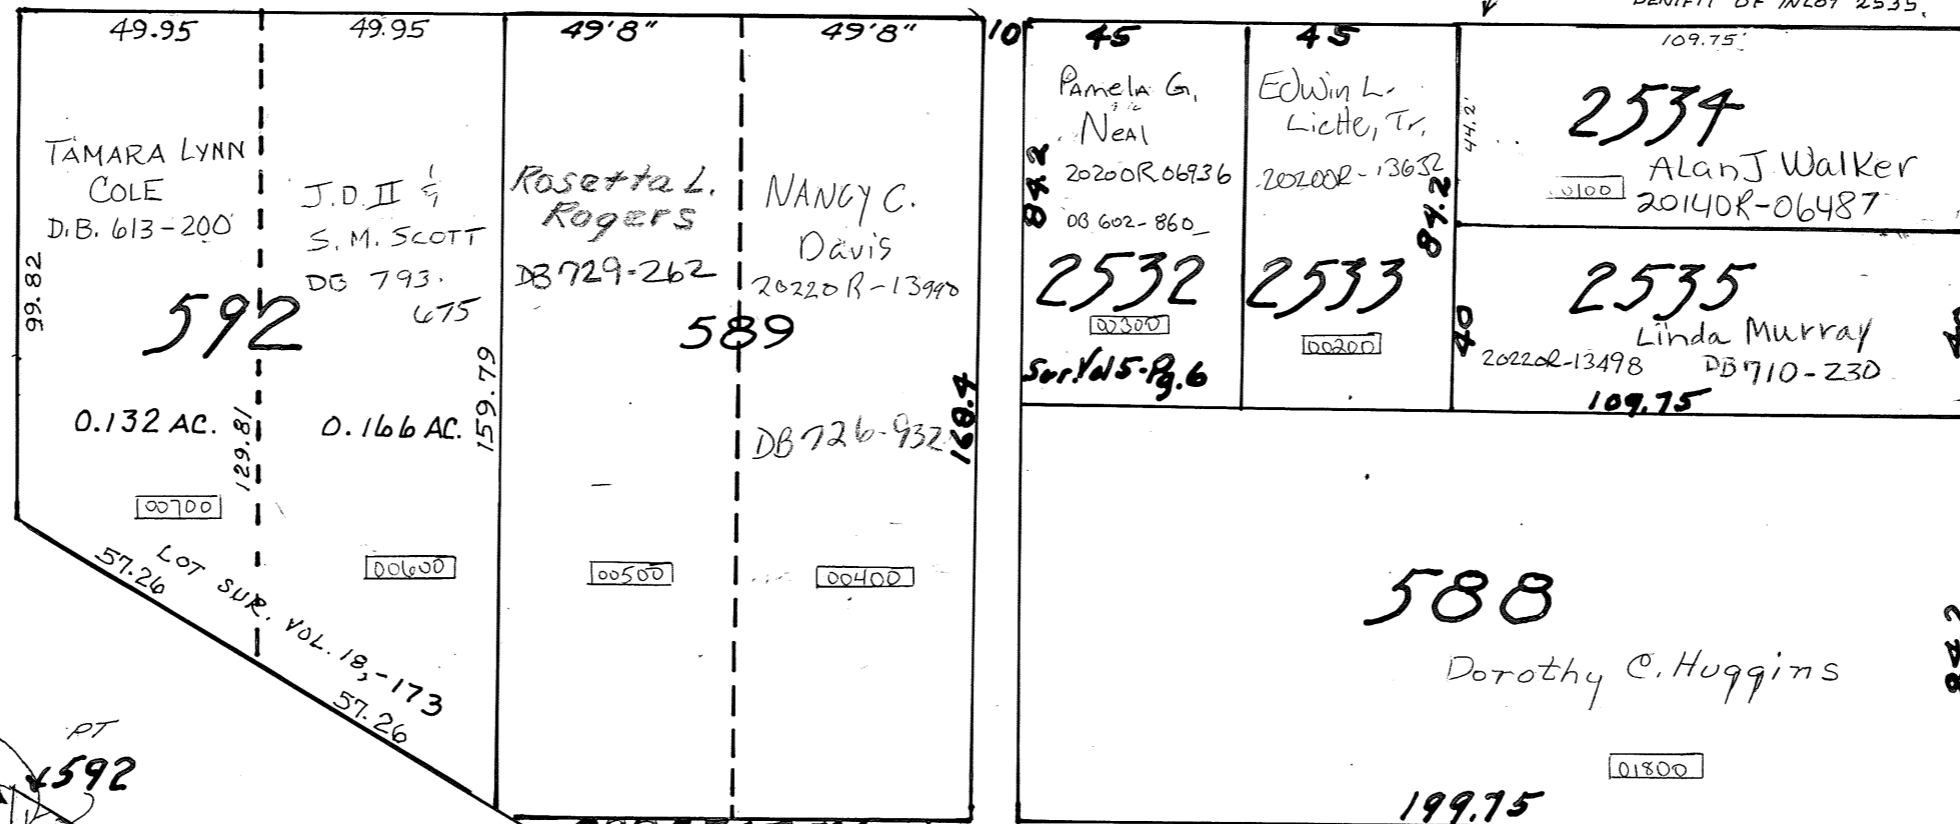 49.95
49.95
49'8"
49'8"
10
45
45
BENIFIT OF INLOT 2535.
109.75'
TAMARA LYNN
COLE
D.B. 613-200
99.82
592
0.132 AC.
129.81
00700
J.D. II &
S. M. SCOTT
DB 793.
675
0.166 AC.
159.79
00600
57.26
LOT SUR. VOL. 18,-173
57.26
PT
592
Rosetta L.
Rogers
DB 729-262
589
00500
NANCY C.
Davis
20220R-13990
DB 726-932
168.4
00400
Pamela G.
Neal
84.2
20200R06936
DB 602-860
2532
00300
Sur. Vol 5-Pg. 6
Edwin L.
20200R-13632
84.2
2533
00200
44.2'
2534
Alan J Walker
0100
20140R-06487
2535
40
Linda Murray
20220R-13498
DB 710-230
109.75
588
Dorothy C. Huggins
84.2
01800
199.75